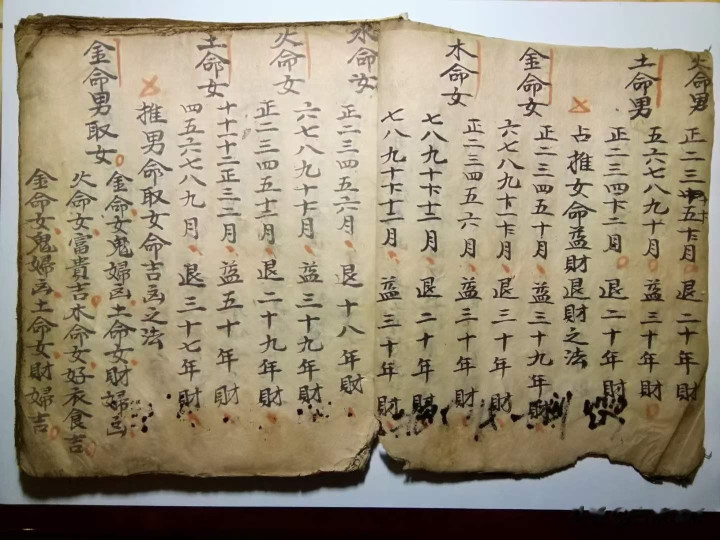 火命男 正二三四五十月 退二十年財
五六七八九十月 益三十年財
土命男 正二三四十二月 退二十年財
占推女命益財退財之法
金命女 正二三四五十月 益三十九年財
六七八九十一十月 退三十年財
木命女 正二三四五六月 益三十年財
七八九十十二月 退二十年財
七八九十十二月 益三十年財
水命女 正二三四五六月 退十八年財
六七八九十十月 益三十九年財
火命女 正二三四五十二月 退二十九年財
十十一十二正三二月 益五十年財
土命女 四五六七八九月 退三十七年財
推男命取女命吉凶之法
金命男取女 金命女鬼婦凶土命女財婦凶
火命女富貴吉木命女好衣食吉
金命女鬼婦凶土命女財婦吉